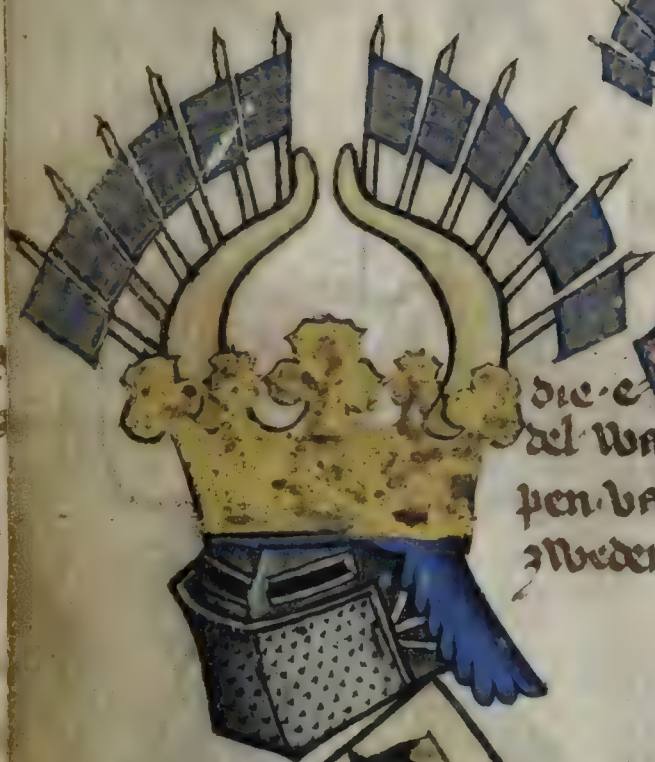 die·e
del wa
pen·va
zweden